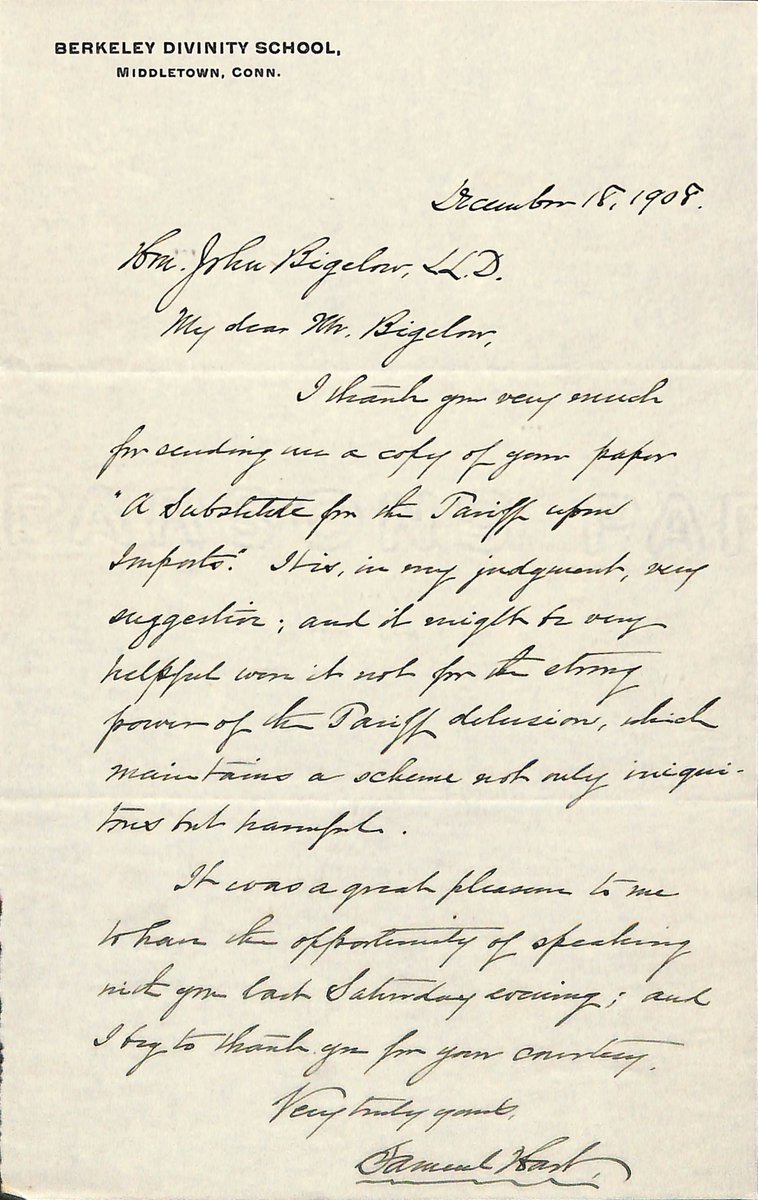 BERKELEY DIVINITY SCHOOL,
MIDDLETOWN, CONN.
December 18, 1908.
Hon. John Bigelow, LL.D.
My dear Mr. Bigelow,
I thank you very much
for sending me a copy of your paper
"A Substitute for the Tariff upon
Imports." It is, in my judgment, very
suggestive; and it might be very
helpful were it not for the strong
power of the Tariff delusion, which
maintains a scheme not only iniqui-
tous but harmful.
It was a great pleasure to me
to have the opportunity of speaking
with you last Saturday evening; and
I beg to thank you for your courtesy.
Very truly yours,
Samuel Hart.